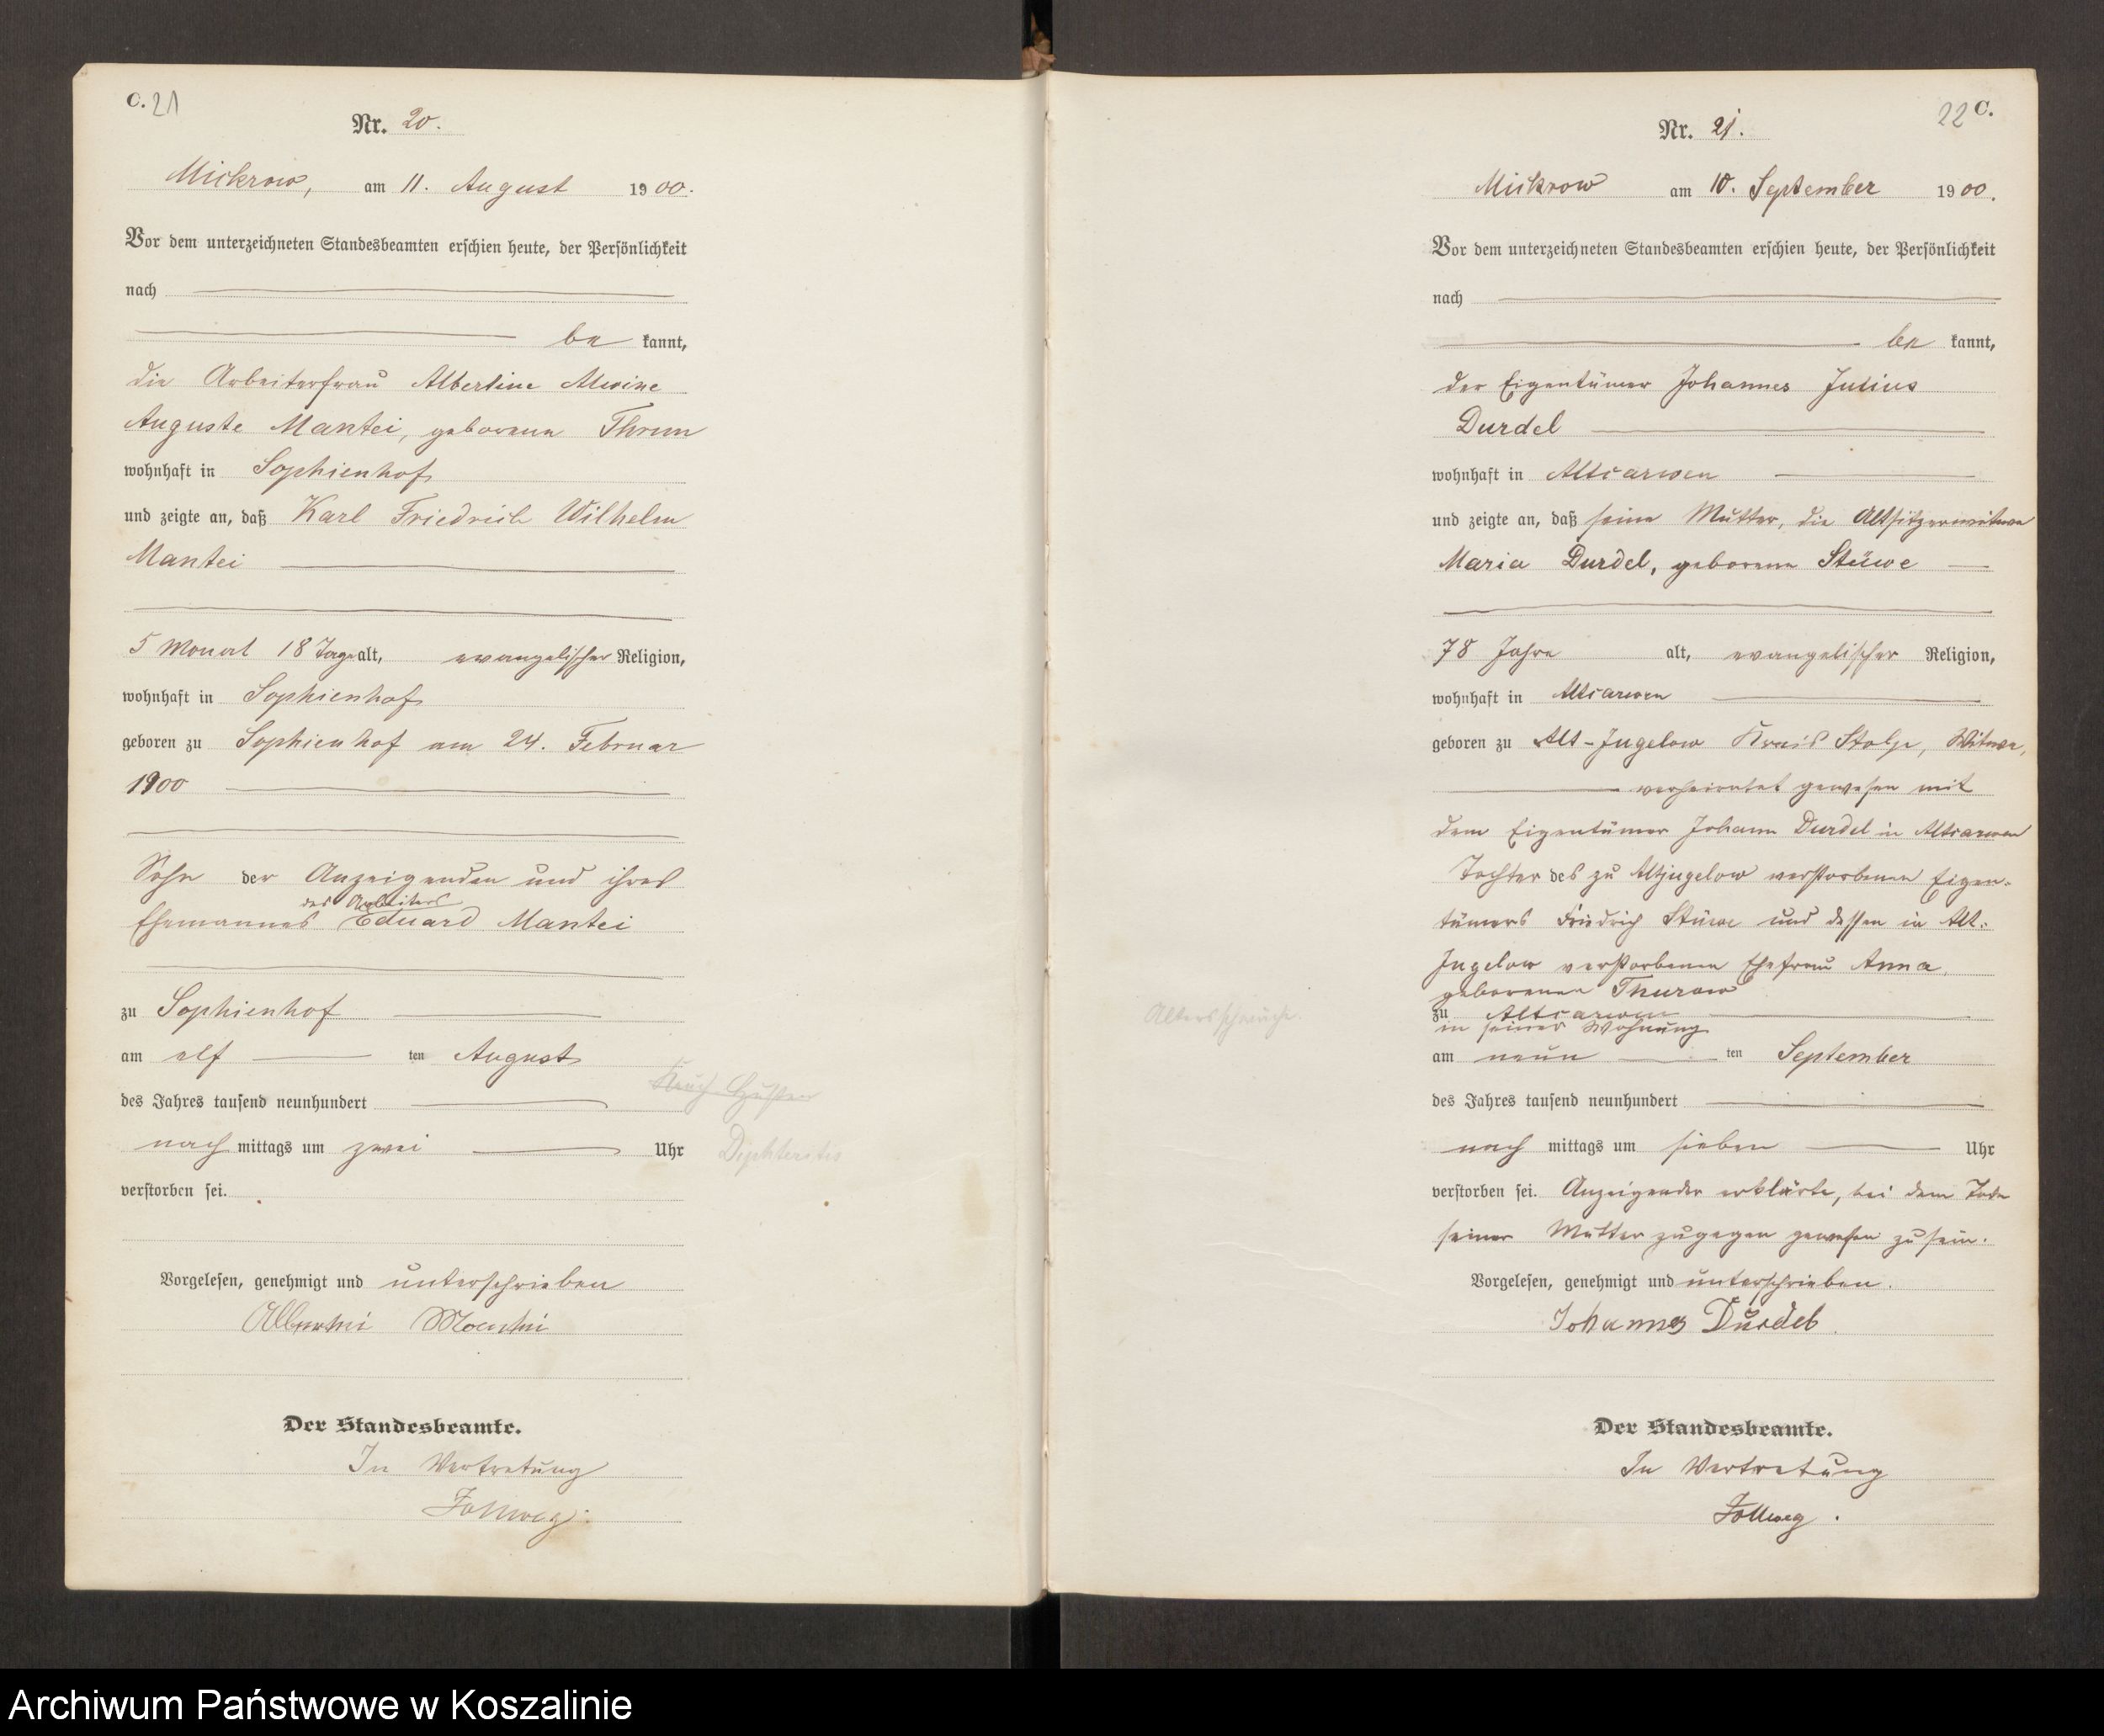 C. 21
Nr. 20.
Mickrow, am 11. August 1900.
Vor dem unterzeichneten Standesbeamten erschien heute, der Persönlichkeit
nach
be kannt,
die Arbeiterfrau Albertine Alwine
Auguste Mantei, geborene Thrun
wohnhaft in Sophienhof
und zeigte an, daß Karl Friedrich Wilhelm
Mantei
5 Monat 18 Tage alt, evangelischer Religion,
wohnhaft in Sophienhof
geboren zu Sophienhof am 24. Februar
1900
Sohn der Anzeigenden und ihres
des Arbeiters
Ehemannes Eduard Mantei
zu Sophienhof
am elf ten August
des Jahres tausend neunhundert
nach mittags um zwei Uhr
verstorben sei.
Vorgelesen, genehmigt und unterschrieben
Mantei
Der Standesbeamte.
In Vertretung
Follweg.
Keuchhusten
Diphteritis
22 C.
Nr. 21.
Mickrow am 10. September 1900.
Vor dem unterzeichneten Standesbeamten erschien heute, der Persönlichkeit
nach
be kannt,
der Eigentümer Johannes Julius
Durdel
wohnhaft in Altcarwen
und zeigte an, daß seine Mutter, die Altsitzerwitwe
Maria Durdel, geborene Stüwe
78 Jahre alt, evangelischer Religion,
wohnhaft in Altcarwen
geboren zu Alt-Jugelow Kreis Stolp, Witwe,
verheiratet gewesen mit
dem Eigentümer Johann Durdel in Altcarwen
Tochter des zu Altjugelow verstorbenen Eigen-
tümers Friedrich Stüwe und dessen in Alt-
Jugelow verstorbenen Ehefrau Anna
geborenen Thurow
zu Altcarwen
in seiner Wohnung
am neun ten September
des Jahres tausend neunhundert
nach mittags um sieben Uhr
verstorben sei. Anzeigender erklärte, bei dem Tode
seiner Mutter zugegen gewesen zu sein.
Vorgelesen, genehmigt und unterschrieben.
Johannes Durdel.
Der Standesbeamte.
In Vertretung
Follweg.
Altersschwäche.
Archiwum Państwowe w Koszalinie